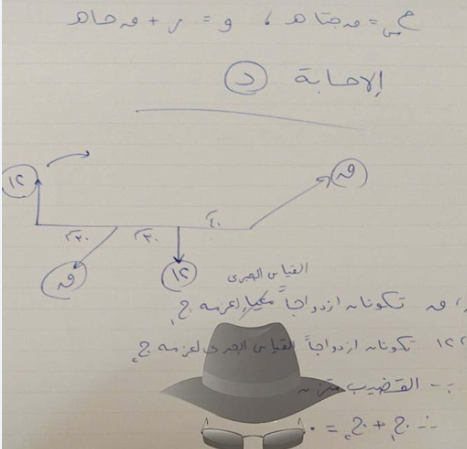 م س = ق جتا هـ ، و = ر + ق حا هـ
الإجابة (د)
١٢
ق
٣٠ ٣٠ ٤٠
ق
١٢
القياس الجبرى
ق تكونان ازدواجاً لعزمه ج١
١٢ ، ١٢ تكونان ازدواجاً القياس الجبرى لعزمه ج٢
∵ القضيب متزن
∴ ج١ + ج٢ = ٠